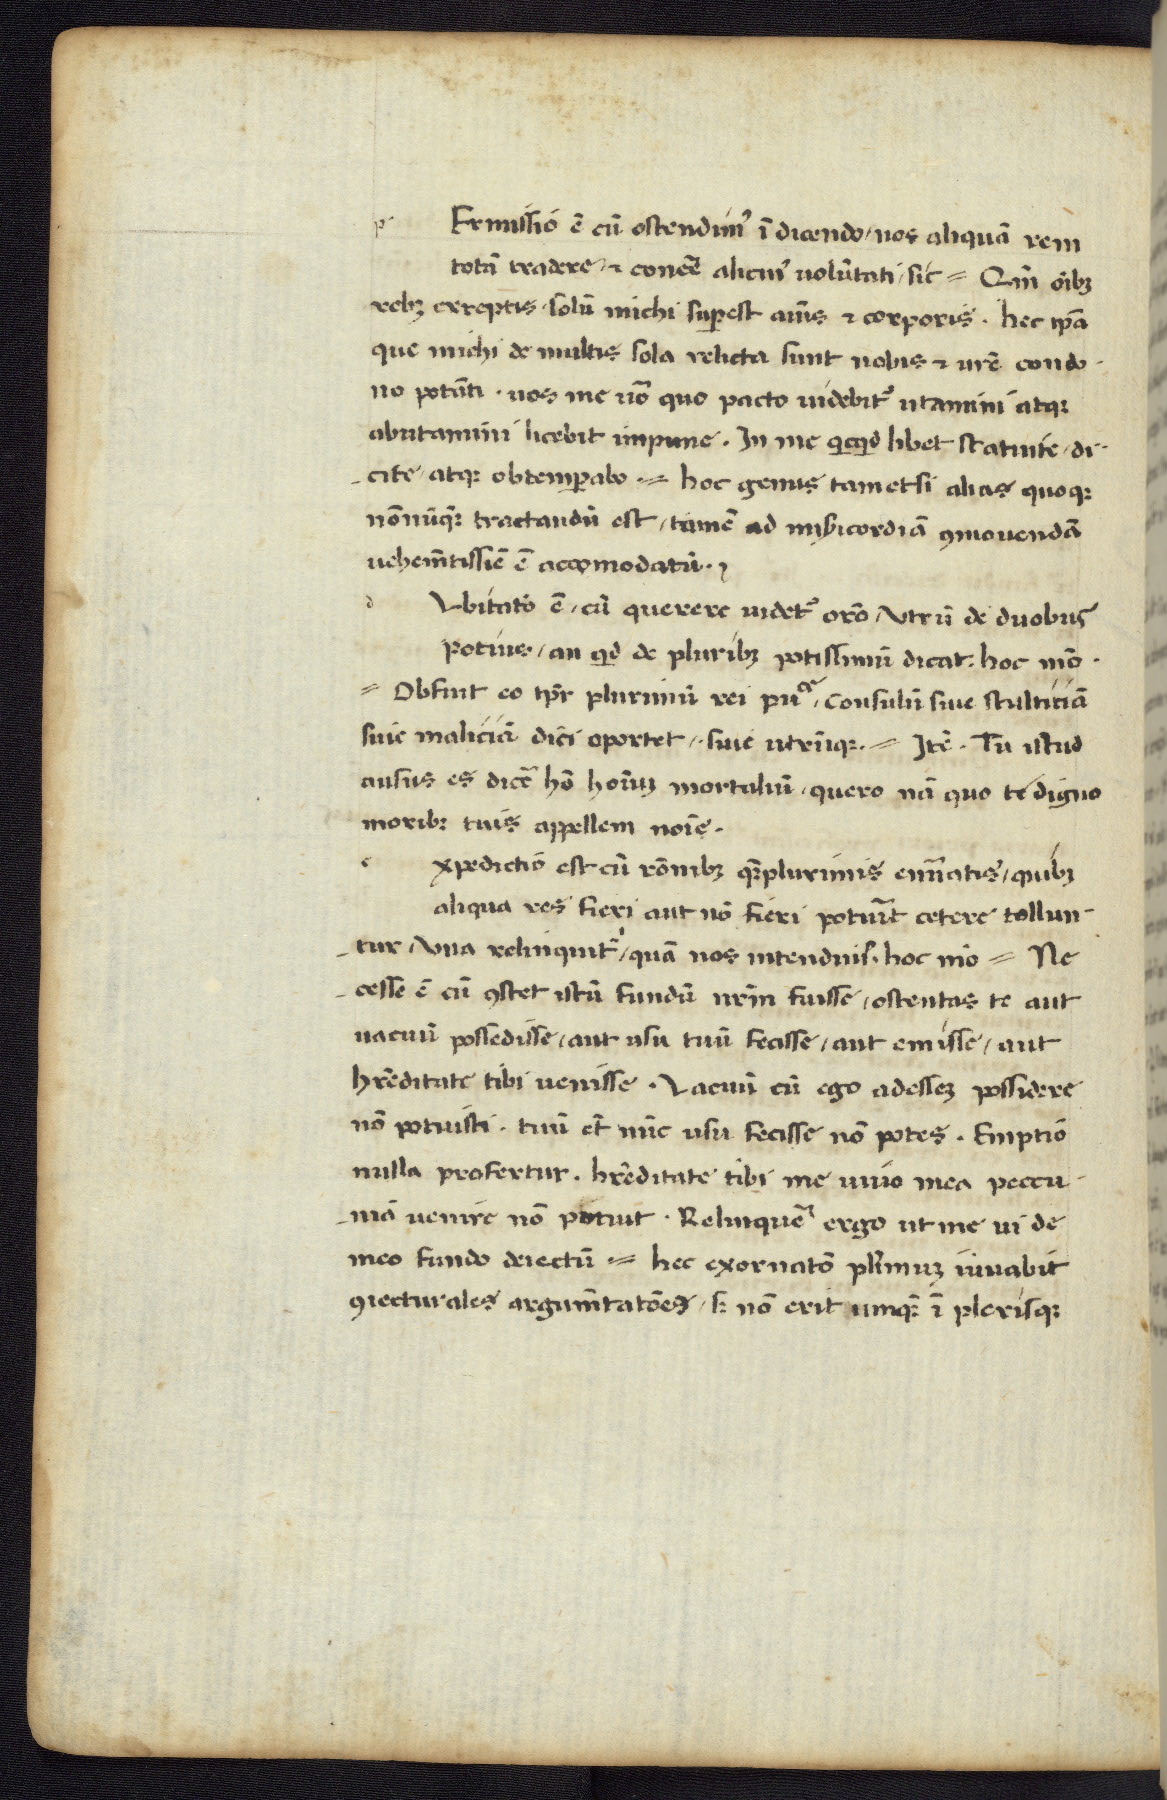 p Ermissiō ē cū ostendimꝰ ī dicendo / nos aliquā rem
totā tradere / ⁊ concēē alicuiꝰ volūtati / sic = Qm̄ oībꝫ
rebꝫ exreptis / solū michi sup̄est aīus ⁊ corporis . hec ip̄a
que michi de multis sola relicta sunt nobis ⁊ vrē condo
no potāti . vos me vō quo pacto videbitꝰ utamini atqꝫ
abutamini licebit impune . In me qͥcqͥd libet statuite / di
cite / atqꝫ obtemp̄abo = hoc genus tametsi alias quoqꝫ
nōnūqꝫ tractandū est / tamē ad mīsicordiā ꝯmovendā
vehemētissiē ē accōmodatū .
d Ubitatō ē / cū querere videtꝰ orō / utrū de duobus
potius / an qͥd de pluribꝫ potissimū dicat : hoc mō .
= Obfuit eo tp̄r plurimū rei pu͞ce / Consulū sive stulticiā
sive maliciā dici oportet / sive utrūqꝫ . = Itē . Tu istud
ausus es dicē hō hoīuꝫ mortaliū / quero nā quo te digno
moribꝫ tuis appellem noīe .
e xpedictiō est cū rōnibꝫ qꝫplurimis enūīatis / quibꝫ
aliqua res fieri aut nō fieri potuīt cetere tollun
tur / una relinquitꝰ / quā nos intendimꝰ . hoc mō = Ne
cesse ē cū ꝯstet istū fundū nrm̄ fuisse / ostentas te aut
vacuū possedisse / aut usu tuū fecisse / aut emisse / aut
hr̄editate tibi venisse . Vacuū cū ego adesseꝫ possidere
nō potuisti . tuū et̄ nūc usu fecisse nō potes . Emptiō
nulla profertur . hr̄editate tibi me vivo mea peccu
niā venire nō potuit . Relinquēꝰ ergo ut me vi de
meo fundo deiectū = hec exornatō plīmuꝫ iuvabit
ꝯiecturales argumētatōēs / sꝫ nō erit umqꝫ ī plerisqꝫ